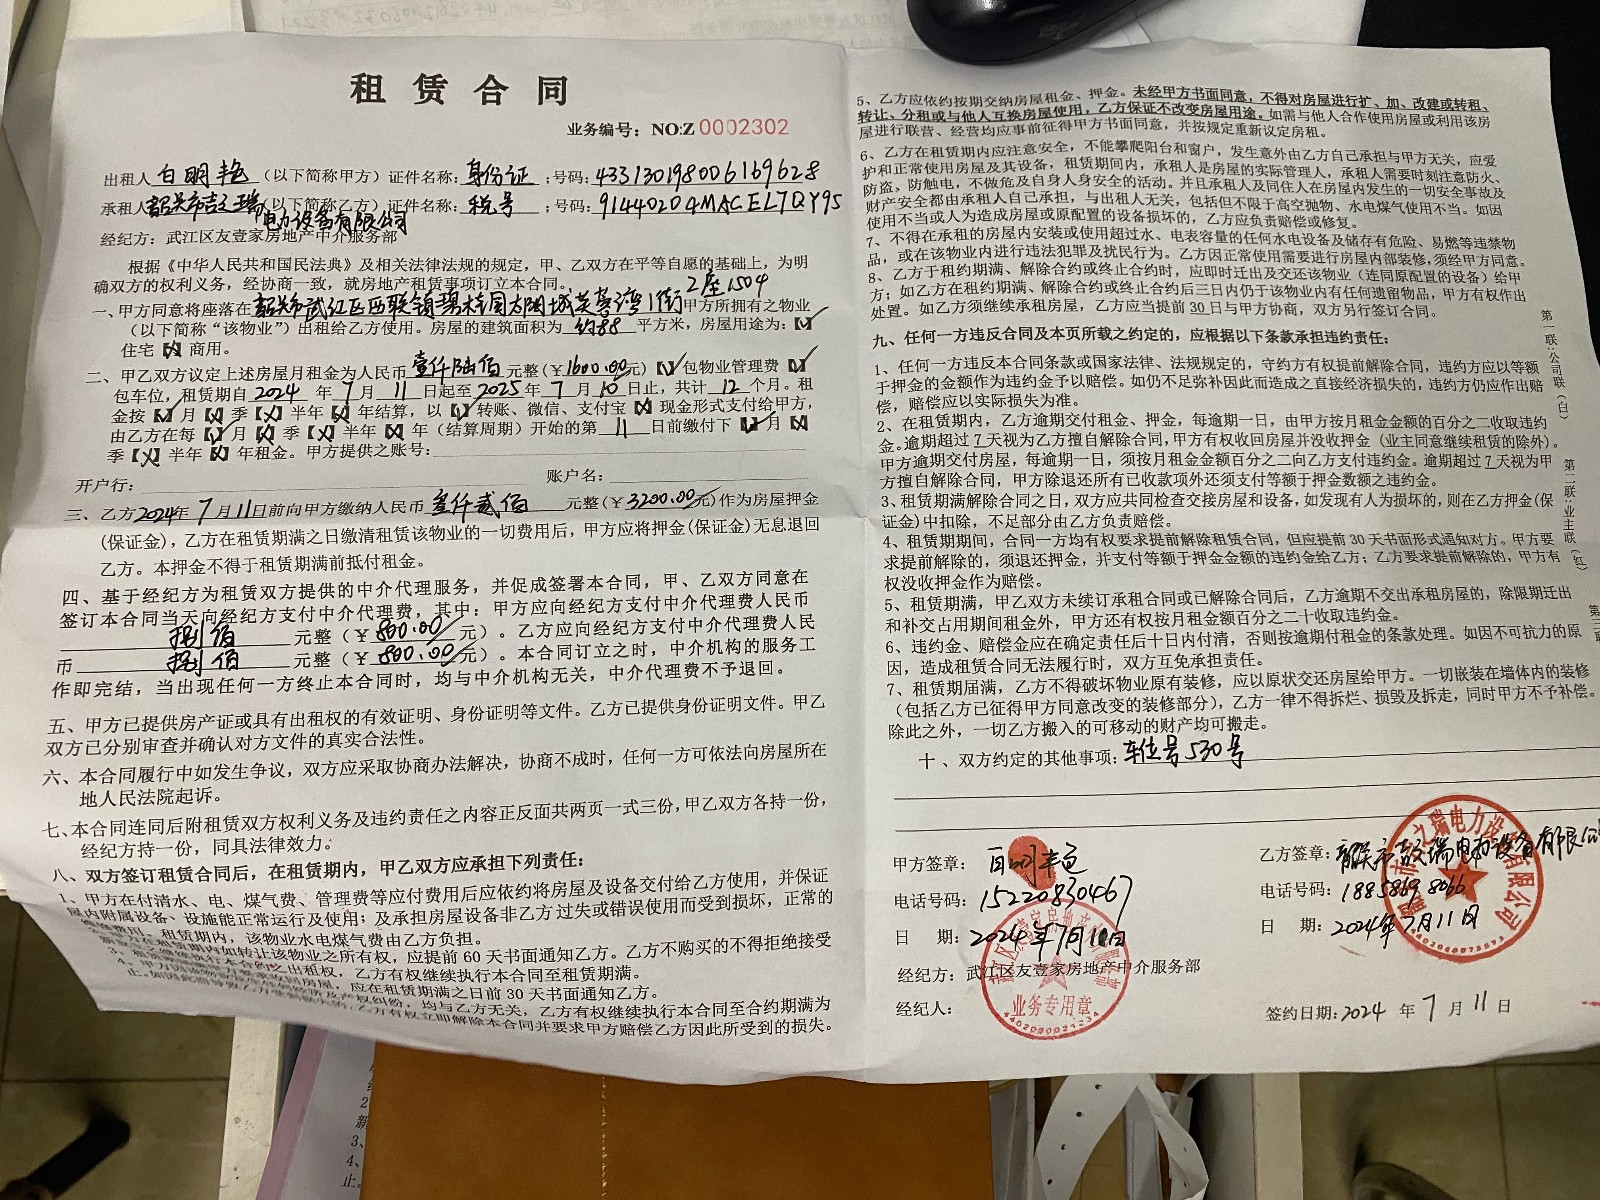 租 赁 合 同
业务编号：NO:Z 0002302
出租人白明艳（以下简称甲方）证件名称：身份证；号码：433130198006169628
承租人韶关市喆之瑞（以下简称乙方）证件名称：税号；号码：91440204MACEL7QY95
电力设备有限公司
经纪方：武江区友壹家房地产中介服务部
根据《中华人民共和国民法典》及相关法律法规的规定，甲、乙双方在平等自愿的基础上，为明
确双方的权利义务，经协商一致，就房地产租赁事项订立本合同。
2座1504
一、甲方同意将座落在韶关市武江区西联镇碧桂园太阳城芙蓉湾1街甲方所拥有之物业
（以下简称“该物业”）出租给乙方使用。房屋的建筑面积为约88平方米，房屋用途为：【✓】
住宅【×】商用。
二、甲乙双方议定上述房屋月租金为人民币壹仟陆佰元整(￥1600.00元)【✓】包物业管理费【✓】
包车位，租赁期自2024年7月11日起至2025年7月10日止，共计12个月。租
金按【✓】月【×】季【×】半年【×】年结算，以【✓】转账、微信、支付宝【×】现金形式支付给甲方，
由乙方在每【✓】月【×】季【×】半年【×】年（结算周期）开始的第11日前缴付下【✓】月【×】
季【×】半年【×】年租金。甲方提供之账号：
开户行： 账户名：
三、乙方2024年7月11日前向甲方缴纳人民币叁仟贰佰元整(￥3200.00元)作为房屋押金
(保证金)，乙方在租赁期满之日缴清租赁该物业的一切费用后，甲方应将押金(保证金)无息退回
乙方。本押金不得于租赁期满前抵付租金。
四、基于经纪方为租赁双方提供的中介代理服务，并促成签署本合同，甲、乙双方同意在
签订本合同当天向经纪方支付中介代理费，其中：甲方应向经纪方支付中介代理费人民币
捌佰元整（￥800.00元）。乙方应向经纪方支付中介代理费人民
币捌佰元整（￥800.00元）。本合同订立之时，中介机构的服务工
作即完结，当出现任何一方终止本合同时，均与中介机构无关，中介代理费不予退回。
五、甲方已提供房产证或具有出租权的有效证明、身份证明等文件。乙方已提供身份证明文件。甲乙
双方已分别审查并确认对方文件的真实合法性。
六、本合同履行中如发生争议，双方应采取协商办法解决，协商不成时，任何一方可依法向房屋所在
地人民法院起诉。
七、本合同连同后附租赁双方权利义务及违约责任之内容正反面共两页一式三份，甲乙双方各持一份，
经纪方持一份，同具法律效力。
八、双方签订租赁合同后，在租赁期内，甲乙双方应承担下列责任：
1、甲方在付清水、电、煤气费、管理费等应付费用后应依约将房屋及设备交付给乙方使用，并保证
屋内附属设备、设施能正常运行及使用；及承担房屋设备非乙方过失或错误使用而受到损坏，正常的
租赁期内，该物业水电煤气费由乙方负担。
租赁期内如转让该物业之所有权，应提前60天书面通知乙方。乙方不购买的不得拒绝接受
之出租权，乙方有权继续执行本合同至租赁期满。
房屋，应在租赁期满之日前30天书面通知乙方。
产权纠纷，均与乙方无关，乙方有权继续执行本合同至合约期满为
止。乙方有权立即解除本合同并要求甲方赔偿乙方因此所受到的损失。
5、乙方应依约按期交纳房屋租金、押金。未经甲方书面同意，不得对房屋进行扩、加、改建或转租、
转让、分租或与他人互换房屋使用，乙方保证不改变房屋用途。如需与他人合作使用房屋或利用该房
屋进行联营、经营均应事前征得甲方书面同意，并按规定重新议定房租。
6、乙方在租赁期内应注意安全，不能攀爬阳台和窗户，发生意外由乙方自己承担与甲方无关，应爱
护和正常使用房屋及其设备，租赁期间内，承租人是房屋的实际管理人，承租人需要时刻注意防火、
防盗，防触电，不做危及自身人身安全的活动。并且承租人及同住人在房屋内发生的一切安全事故及
财产安全都由承租人自己承担，与出租人无关，包括但不限于高空抛物、水电煤气使用不当。如因
使用不当或人为造成房屋或原配置的设备损坏的，乙方应负责赔偿或修复。
7、不得在承租的房屋内安装或使用超过水、电表容量的任何水电设备及储存有危险、易燃等违禁物
品，或在该物业内进行违法犯罪及扰民行为。乙方因正常使用需要进行房屋内部装修，须经甲方同意。
8、乙方于租约期满、解除合约或终止合约时，应即时迁出及交还该物业（连同原配置的设备）给甲
方；如乙方在租约期满、解除合约或终止合约后三日内仍于该物业内有任何遗留物品，甲方有权作出
处置。如乙方须继续承租房屋，乙方应当提前30日与甲方协商，双方另行签订合同。
九、任何一方违反合同及本页所载之约定的，应根据以下条款承担违约责任：
1、任何一方违反本合同条款或国家法律、法规规定的，守约方有权提前解除合同，违约方应以等额
于押金的金额作为违约金予以赔偿。如仍不足弥补因此而造成之直接经济损失的，违约方仍应作出赔
偿，赔偿应以实际损失为准。
2、在租赁期内，乙方逾期交付租金、押金，每逾期一日，由甲方按月租金金额的百分之二收取违约
金。逾期超过7天视为乙方擅自解除合同，甲方有权收回房屋并没收押金（业主同意继续租赁的除外）。
甲方逾期交付房屋，每逾期一日，须按月租金金额百分之二向乙方支付违约金。逾期超过7天视为甲
方擅自解除合同，甲方除退还所有已收款项外还须支付等额于押金数额之违约金。
3、租赁期满解除合同之日，双方应共同检查交接房屋和设备，如发现有人为损坏的，则在乙方押金(保
证金)中扣除，不足部分由乙方负责赔偿。
4、租赁期期间，合同一方均有权要求提前解除租赁合同，但应提前30天书面形式通知对方。甲方要
求提前解除的，须退还押金，并支付等额于押金金额的违约金给乙方；乙方要求提前解除的，甲方有
权没收押金作为赔偿。
5、租赁期满，甲乙双方未续订承租合同或已解除合同后，乙方逾期不交出承租房屋的，除限期迁出
和补交占用期间租金外，甲方还有权按月租金额百分之二十收取违约金。
6、违约金、赔偿金应在确定责任后十日内付清，否则按逾期付租金的条款处理。如因不可抗力的原
因，造成租赁合同无法履行时，双方互免承担责任。
7、租赁期届满，乙方不得破坏物业原有装修，应以原状交还房屋给甲方。一切嵌装在墙体内的装修
（包括乙方已征得甲方同意改变的装修部分），乙方一律不得拆烂、损毁及拆走，同时甲方不予补偿。
除此之外，一切乙方搬入的可移动的财产均可搬走。
十、双方约定的其他事项：车位号530号
第一联：公司联（白）
第二联：业主联（红）
第三联
甲方签章：白明艳
电话号码：15220830467
日 期：2024年7月11日
经纪方：武江区友壹家房地产中介服务部
经纪人：
业务专用章
4402030021234
乙方签章：韶关市喆之瑞电力设备有限公司
电话号码：18858698066
日 期：2024年7月11日
签约日期：2024 年 7 月 11 日